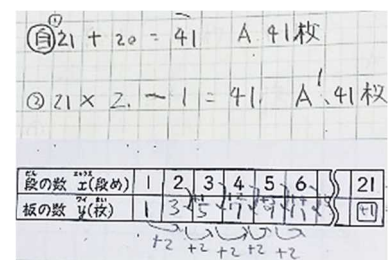 自① 21 + 20 = 41 A. 41枚
② 21 × 2 - 1 = 41. A. 41枚
段の数 x(段め) 1 2 3 4 5 6 21
だん エックス
板の数 y(枚) 1 3 5 7 9 11 41
いた ワイ まい
+2 +2 +2 +2 +2